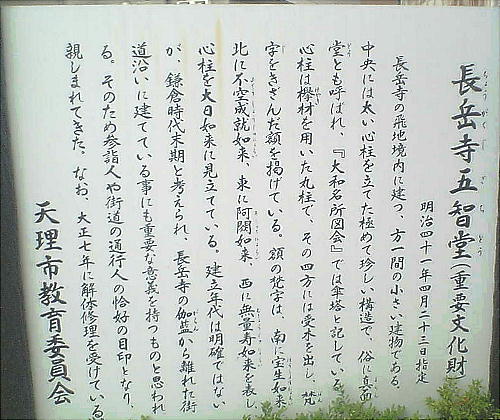 長岳寺五智堂（重要文化財）
ちょうがくじごちどう
明治四十一年四月二十三日指定
長岳寺の飛地境内に建つ、方一間の小さい建物である。
中央には太い心柱を立てた極めて珍しい構造で、俗に真面
堂とも呼ばれ、『大和名所図会』では傘塔と記している。
心柱は欅材を用いた丸柱で、その四方には受木を出し、梵
字をきざんだ額を掲げている。額の梵字は、南に宝生如来
北に不空成就如来、東に阿閦如来、西に無量寿如来を表し、
心柱を大日如来に見立てている。建立年代は明確ではない
が、鎌倉時代末期と考えられ、長岳寺の伽藍から離れた街
道沿いに建てている事にも重要な意義を持つものと思われ
る。そのため参詣人や街道の通行人の恰好の目印となり、
親しまれてきた。なお、大正七年に解体修理を受けている
天理市教育委員会